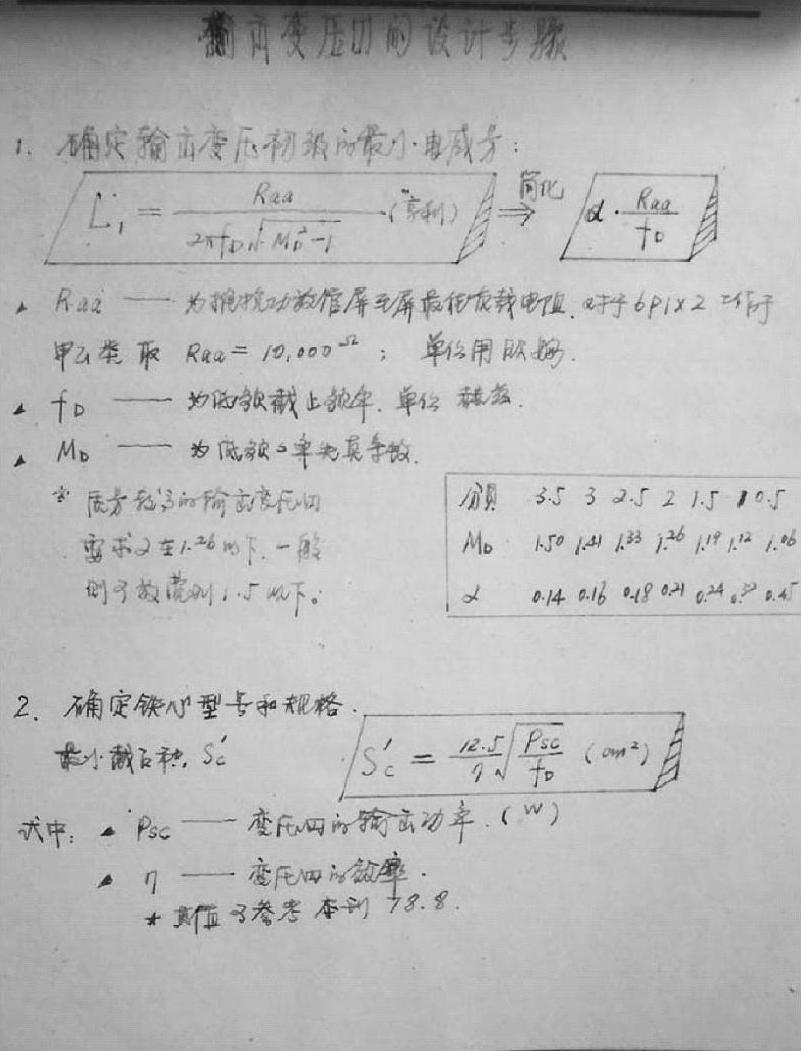 输出变压器的设计步骤
1. 确定输出变压初级的最小电感量:
L₁ = Raa / 2πf_D√(M_D²-1) (亨利) ⇒ 简化 α · Raa / f_D
▲ Raa —— 为推挽功放管屏至屏最佳负载电阻. 对于6P1×2工作于
甲乙类 取 Raa = 10,000Ω ; 单位用欧姆.
▲ f_D —— 为低频截止频率. 单位 赫兹.
▲ M_D —— 为低频 率失真系数.
※ 质量较高的输出变压四
要求 在1.26以下. 一般
则可放宽到1.5以下。
分贝 3.5 3 2.5 2 1.5 1 0.5
M_D 1.50 1.41 1.33 1.26 1.19 1.12 1.06
α 0.14 0.16 0.18 0.21 0.24 0.32 0.45
2. 确定铁心型号和规格.
最小截面积. Sc′
Sc′ = 12.5/η √(Psc/f_D) (cm²)
式中: ▲ Psc —— 变压四的输出功率. (W)
▲ η —— 变压四的效率.
* 其值可参考 本刊 78.8.